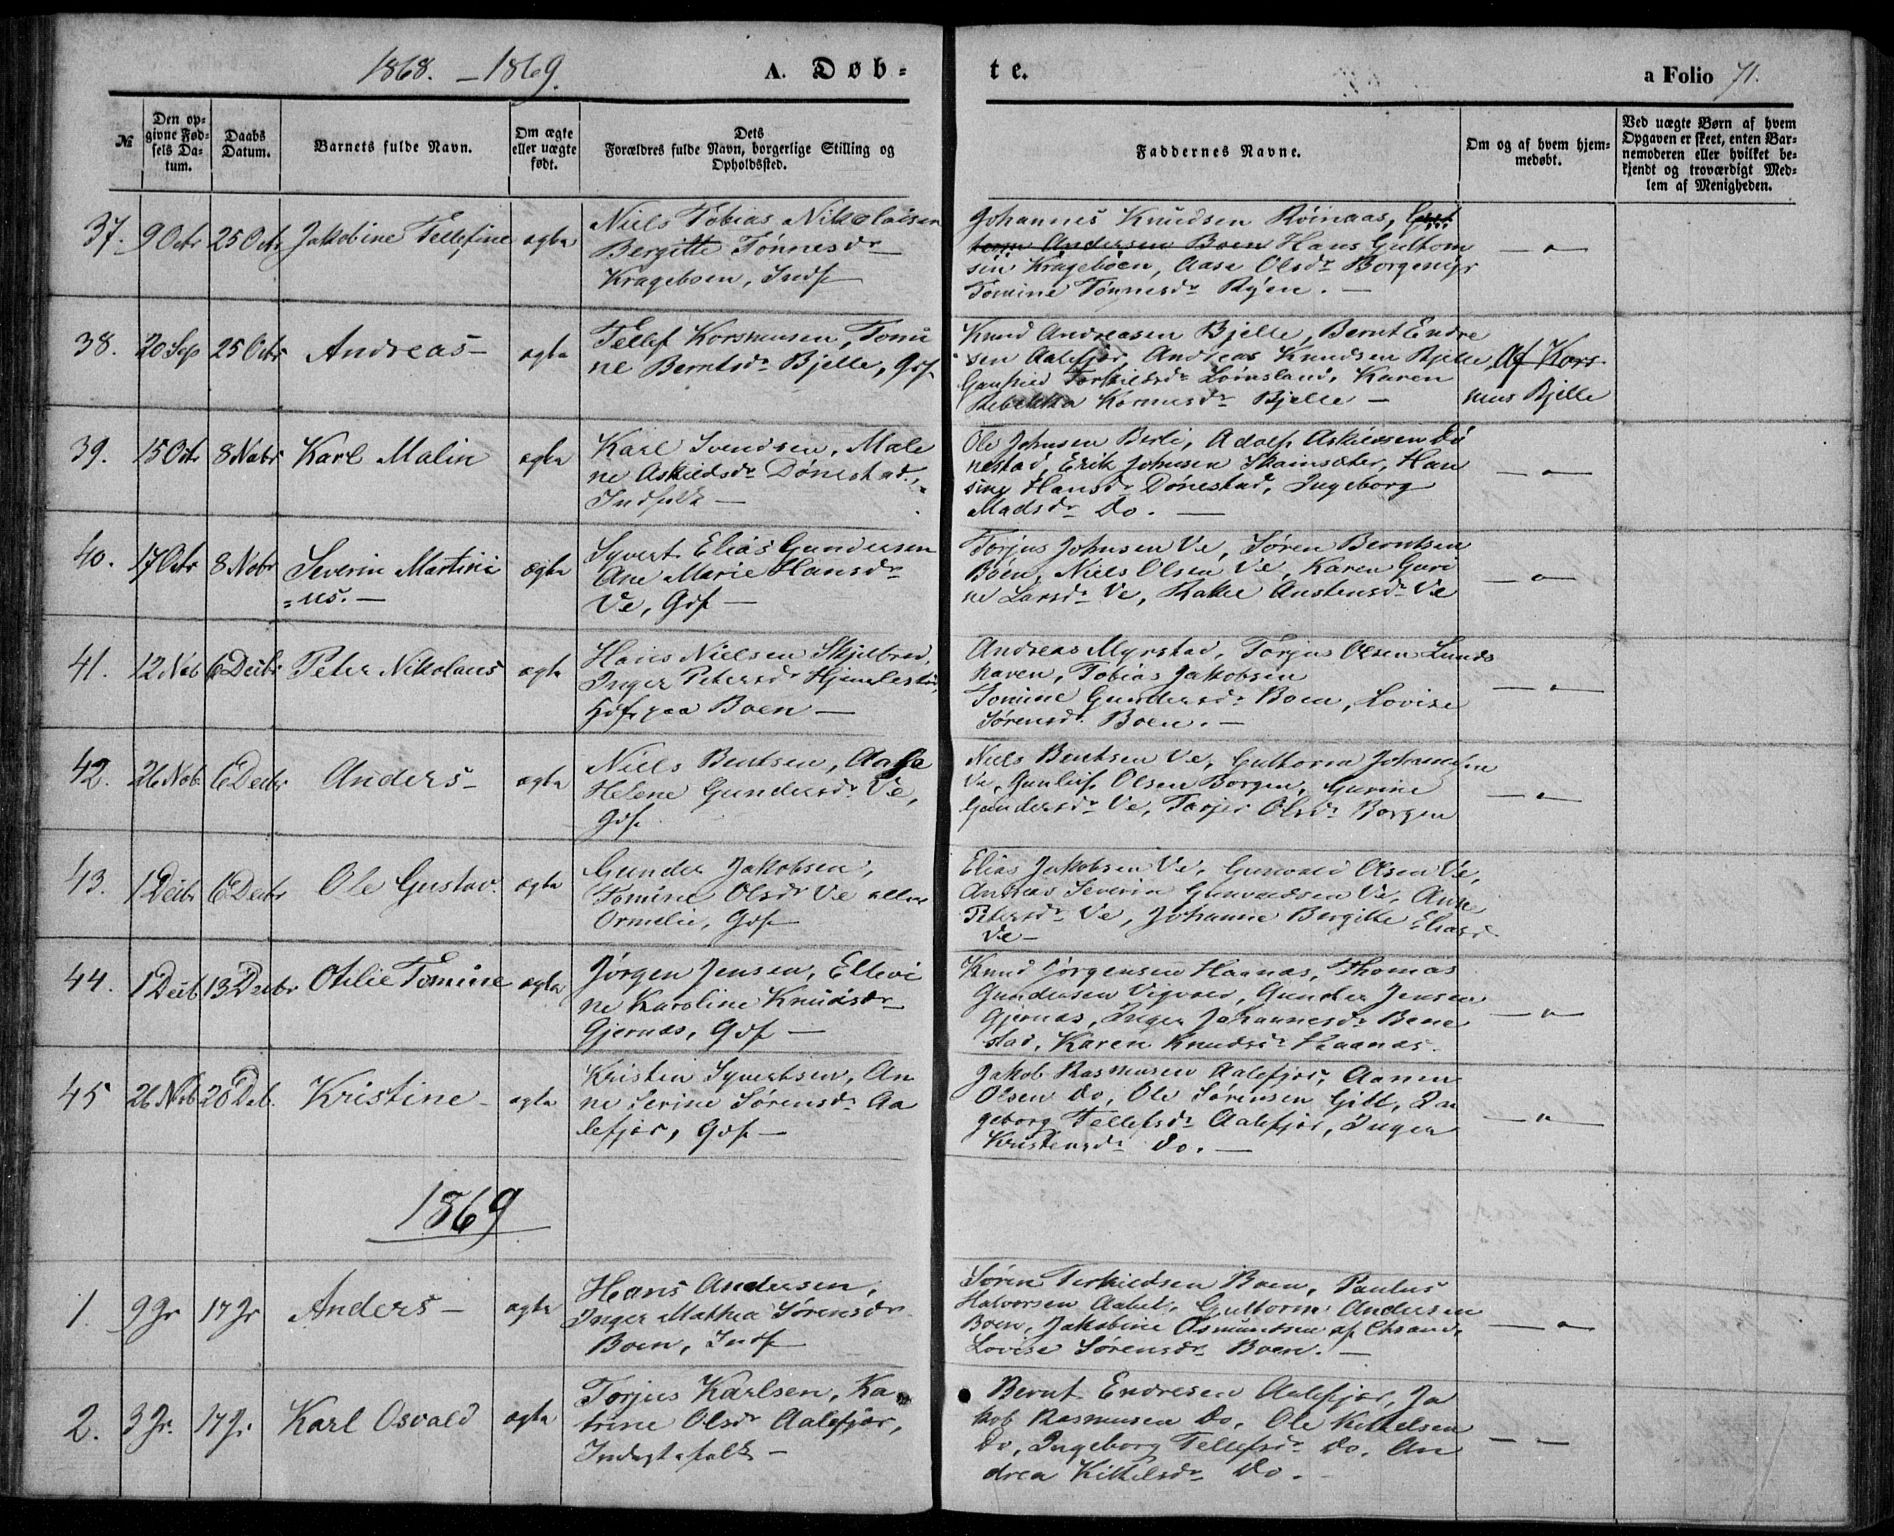 1868. – 1869.
A. Døb-
te.
a Folio 71.
№
Den op-
givne Fød-
sels Da-
tum.
Daabs
Datum.
Barnets fulde Navn.
Om ægte
eller uægte
født.
Dets
Forældres fulde Navn, borgerlige Stilling og
Opholdssted.
Faddernes Navne.
Om og af hvem hjem-
medøbt.
Ved uægte Børn af hvem
Opgaven er skeet, enten Bar-
nemoderen eller hvilket be-
kjendt og troværdigt Med-
lem af Menigheden.
37. 9 Octr 25 Octr Jakobine Tellefine ægte
Niels Tobias Nikolaisen
Bergitte Tønnesdr
Krageboen, Indf
Johannes Knudsen
Andersen Boen Hans Guttom
sen Krageboen, Aase Olsdr
Tomine Tønnesdr Ryen. —
— " —
38. 20 Sep 25 Octr Andreas – ægte
Tellef Korsmusen, Tomi
ne Berntsdr Bjelle, Gdf
Knud Andreasen Bjelle, Bernt Endre
sen Aalefjær, Andreas Knudsen Bjelle
Torkildsdr Karen
Rebekka Bjelle —
Af Kors
mus Bjelle
39. 15 Octr 8 Nobr Karl Malin ægte
Karl Svendsen, Male
ne Askildsdr Dønestad,
Indfolk —
Ole Johnsen Adolf Askildsen Dø
nestad, Erik Johnsen Han
sine Hansdr Dønestad, Ingeborg
Madsdr Do. —
— " —
40. 17 Octr 8 Nobr Severin Martini
= us. — ægte
Syvert Elias Gundersen
Ane Marie Hansdr
Ve, Gdf —
Torjus Johnsen Ve, Søren Berntsen
Boen, Niels Olsen Ve, Karen Guri
ne Larsdr Ve, Austensdr Ve
— " —
41. 12 Nob 6 Decbr Peter Nikolaus ægte
Hans Nielsen Skjelbred,
Inger Petersdr
Gdf paa Boen —
Andreas Myrstad, Torjus Olsen Lunds
haven, Tobias Jakobsen
Tomine Gundersdr Boen, Lovise
Sørensdr Boen. —
— " —
42. 26 Nob. 6 Decbr Anders – ægte
Niels Bentsen, Aase
Helene Gundersdr Ve,
Gdf
Niels Bentsen Ve, Guttorm Johnsen
Ve, Gunluf Olsen Borgen, Gurine
Gundersdr Ve, Torjer Olsdr Borgen
— " —
43. 1 Decbr 6 Decbr Ole Gustav. ægte
Gunder Jakobsen,
Tomine Olsdr Ve eller
Ormelie, Gdf —
Elias Jakobsen Ve, Gunvald Olsen Ve,
Andreas Severin Gunvaldsen Ve, Anne
Petersdr Ve, Johanne Bergitte Eliasd
Ve —
44. 1 Decb 13 Decbr Otilie Tomine ægte
Jørgen Jensen, Ellevi
ne Karoline Knudsdr
Gjernæs, Gdf —
Knud Jørgensen Haanas, Thomas
Gundersen Vigvold, Gunder Jensen
Gjernæs, Inger Johannesdr Bene
stad, Karen Knudsdr Haanas.
— " —
45 26 Nob 28 Deb. Kristine – ægte
Kristen Syvertsen, An
ne Serine Sørensdr Aa
lefjær, Gdf —
Jakob Rasmusen Aalefjær, Aanen
Olsen Do, Ole Sørensen Gill, In
geborg Tellefsdr Aalefjær, Inger
Kristensdr Do. —
— " —
1869
1. 9 Jr 17 Jr Anders – ægte
Hans Andersen,
Inger Mathea Sørensdr
Boen, Indf —
Søren Terkildsen Boen, Paulus
Halvorsen Guttorm Andersen
Boen, Jakobine Osmundsen af Chrsand,
Lovise Sørensdr Boen. —
— " —
2. 3 Jr. 17 Jr Karl Osvald ægte
Torjus Karlsen, Ka
trine Olsdr Aalefjær,
Inderstefolk —
Bernt Endresen Aalefjær, Ja
kob Rasmusen Do, Ole Kittelsen
Do, Ingeborg Tellefsdr Do, An
drea Kittelsdr Do. –
— —